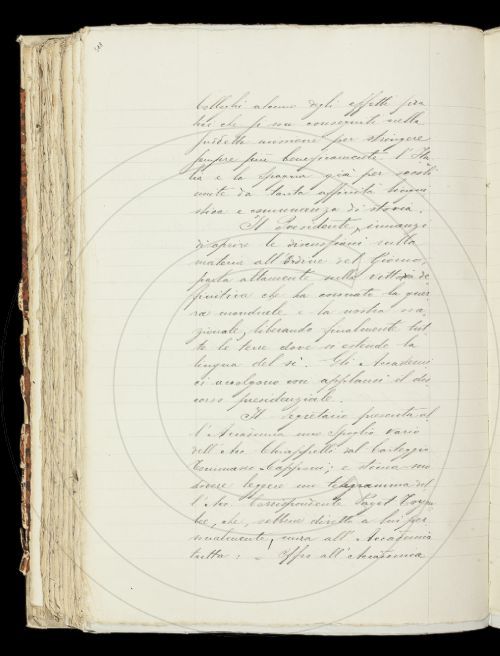 Colleghi alcuno degli effetti pra
tici che si son conseguiti nella
suddetta unione per stringere
sempre più beneficamente l'Ita
lia e la Spagna già per secoli
unite da tanta affinità lingui
stica e comunanza di storia.
Il Presidente, innanzi
di aprire le discussioni sulla
materia all'Ordine del Giorno,
parla altamente sulla vittoria de
finitiva che ha coronato la guer
ra mondiale e la nostra na
zionale, liberando finalmente tut
te le terre dove si estende la
lingua del sì. Gli Accademi
ci accolgono con applausi il dis
corso presidenziale.
Il Segretario presenta al
l'Accademia uno spoglio vario
dell'Acc. Chiappelli sul Carteggio
Tommaseo-Capponi; e stima suo
dovere leggere un telegramma del
l'Acc. Corrispondente Paget Toyn
bee, che, sebbene diretto a lui per
sonalmente, mira all'Accademia
tutta: - Offro all'Accademia